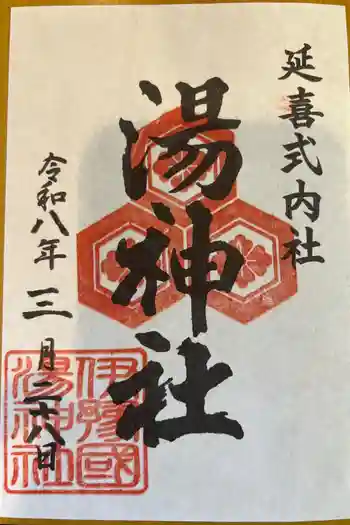 延喜式内社
湯神社
令和八年三月二十八日
伊豫國
湯神社